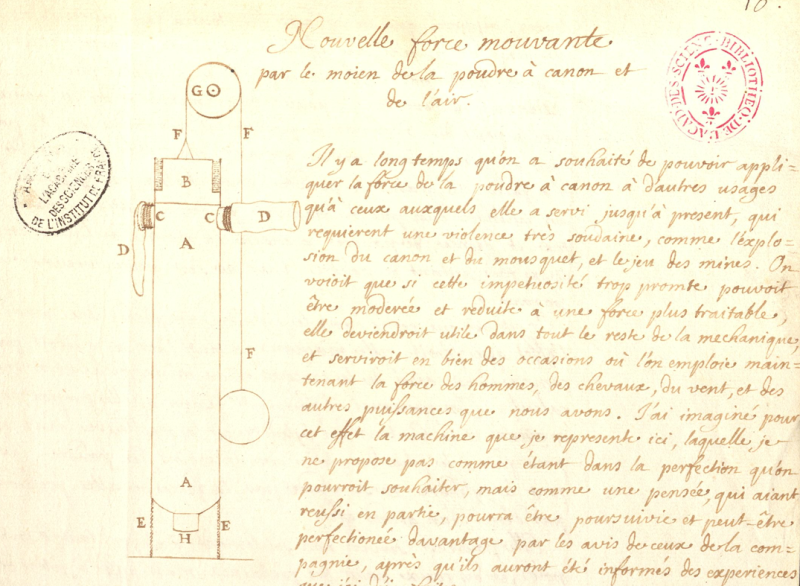 10.
Nouvelle force mouvante
par le moien de la poudre à canon et
de l'air.
G
F
F
B
C
C
D
D
A
F
A
E
E
H
BIBLIOTHEQ·DE·L'ACAD·DES·SCIENC·
L'ACADÉMIE
DES SCIENCES
DE L'INSTITUT DE FRANCE
Il y a long temps qu'on a souhaité de pouvoir appli=
quer la force de la poudre à canon à d'autres usages
qu'à ceux auxquels elle a servi jusqu'à present, qui
requierent une violence très soudaine, comme l'explo=
sion du canon et du mousquet, et le jeu des mines. On
voioit que si cette impetuosité trop promte pouvoit
être moderée et reduite à une force plus traitable,
elle deviendroit utile dans tout le reste de la mechanique,
et serviroit en bien des occasions où l'on emploie main=
tenant la force des hommes, des chevaux, du vent, et des
autres puissances que nous avons. J'ai imaginé pour
cet effet la machine que je represente ici, laquelle je
ne propose pas comme étant dans la perfection qu'on
pourroit souhaiter, mais comme une pensée, qui aiant
reussi en partie, pourra être poursuivie et peut-être
perfectionée davantage par les avis de ceux de la com=
pagnie, après qu'ils auront été informes des experiences